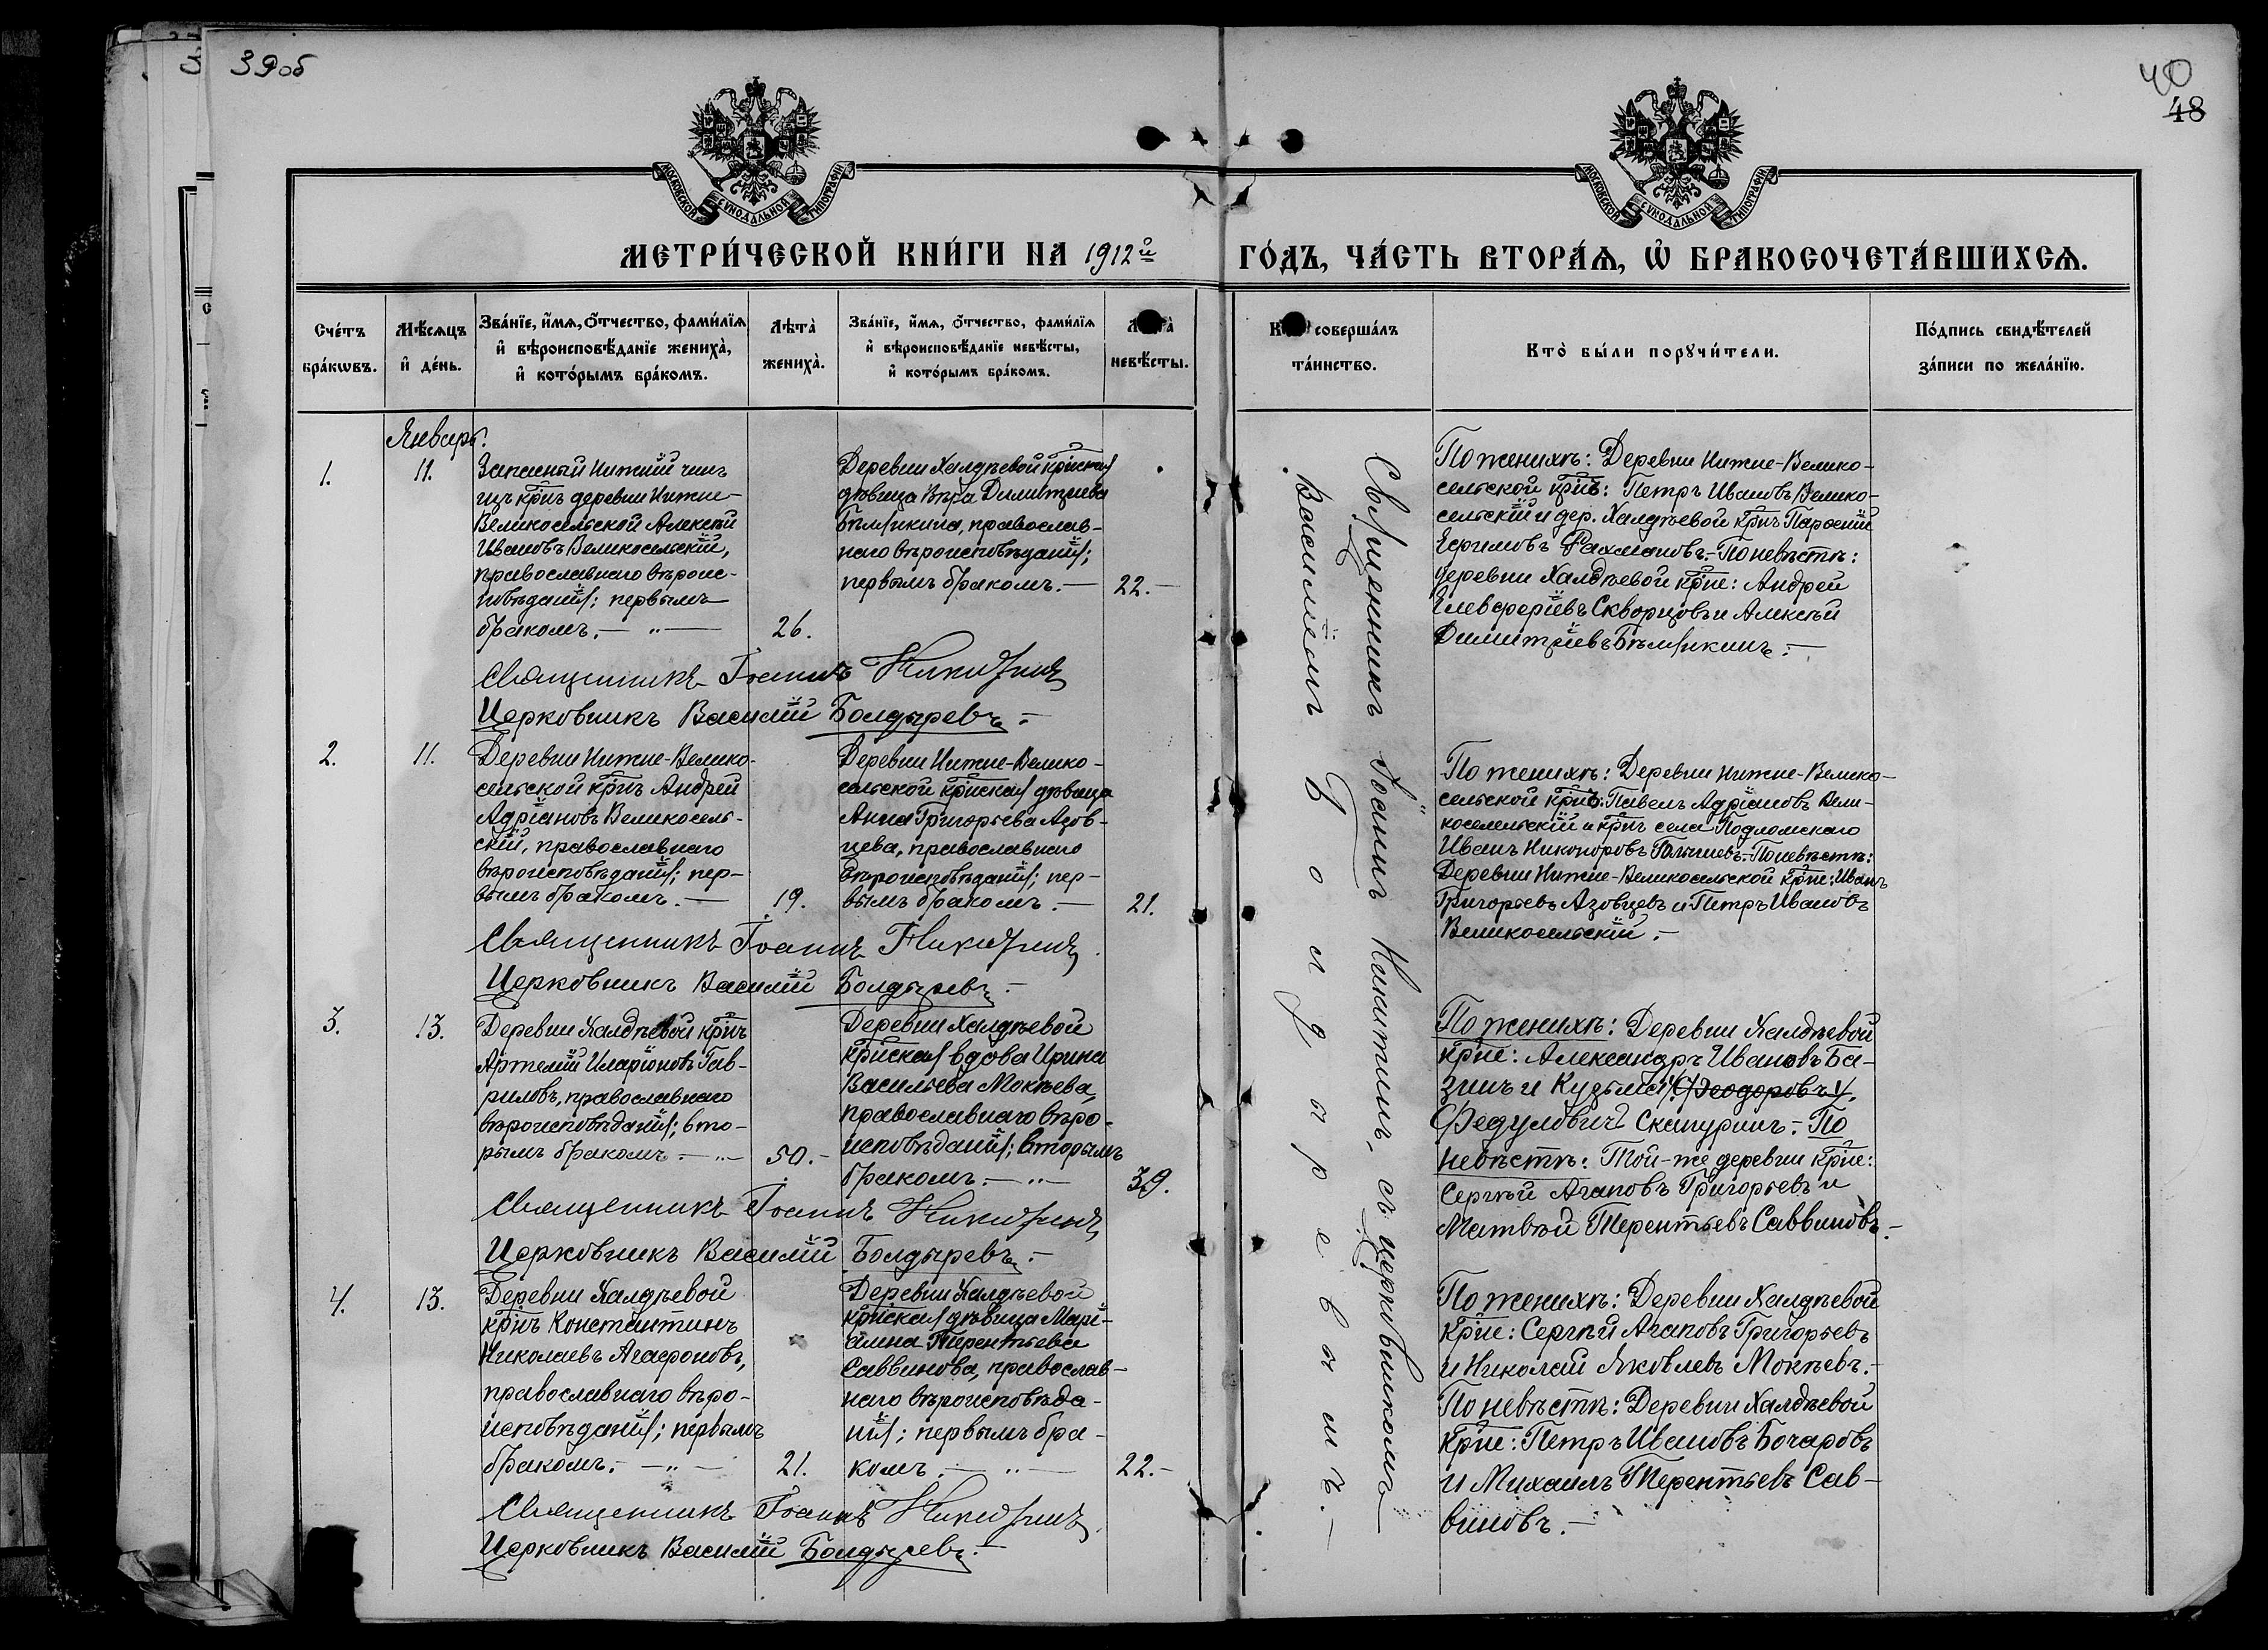 39об
40
48
МОСКОВСКОЙ СѴНОДАЛЬНОЙ ТИПОГРАФІИ
МОСКОВСКОЙ СѴНОДАЛЬНОЙ ТИПОГРАФІИ
МЕТРИ́ЧЕСКОЙ КНИ́ГИ НА 1912й ГО́ДЪ, ЧА́СТЬ ВТОРА́Ѧ, Ѽ БРАКОСОЧЕТА́ВШИХСѦ.
Сче́тъ
бра́кѡвъ.
Мѣ́сѧцъ
и҆ де́нь.
Зва́нїе, и҆́мѧ, ѻ҆́тчество, фами́лїѧ
и҆ вѣроисповѣ́данїе жениха̀,
и҆ кото́рымъ бра́комъ.
Лѣта̀
жениха̀.
Зва́нїе, и҆́мѧ, ѻ҆́тчество, фами́лїѧ
и҆ вѣроисповѣ́данїе невѣ́сты,
и҆ кото́рымъ бра́комъ.
невѣ́сты.
соверша́лъ
та́инство.
Кто̀ бы́ли порꙋчи́тели.
По́дпись свидѣ́телей
за́писи по жела́нїю.
Январь.
1.
11.
Запасный нижній чинъ
изъ крнъ деревни Нижне-
Великосельской Алексѣй
Ивановъ Великосельскій,
православнаго вѣроис-
повѣданія; первымъ
бракомъ. — „ —
26.
Деревни Халдѣевой крїнская
дѣвица Вѣра Димитріева
Бѣлякина, православ-
наго вѣроисповѣданія;
первымъ бракомъ. —
22. —
По женихѣ: Деревни Нижне-Велико-
сельской крне: Петръ Ивановъ Велико-
сельскій и дер. Халдѣевой крнъ
Рахмановъ. — По невѣстѣ:
деревни Халдѣевой крне: Андрей
Елевферіевъ Скворцовъ и Алексѣй
Димитріевъ Бѣлякинъ. —
Священникъ Іоаннъ Никитинъ
Церковникъ Василій Болдыревъ. —
2.
11.
Деревни Нижне-Велико-
сельской крнъ Андрей
Адріановъ Великосель-
скій, православнаго
вѣроисповѣданія; пер-
вымъ бракомъ. —
19.
Деревни Нижне-Велико-
сельской крнская дѣвица
Анна Григорьева Азов-
цева, православнаго
вѣроисповѣданія; пер-
вымъ бракомъ. —
21.
По женихѣ: Деревни Нижне-Велико-
сельской крнъ: Павелъ Адріановъ Вели-
косельскій и крнъ села Подломскаго
Иванъ Никоноровъ По невѣстѣ:
Деревни Нижне-Великосельской крне: Иванъ
Григорьевъ Азовцевъ и Петръ Ивановъ
Великосельскій. —
Священникъ Іоаннъ Никитинъ
Церковникъ Василій Болдыревъ. —
3.
13.
Деревни Халдѣевой крнъ
Артемій Иларіоновъ Гав-
риловъ, православнаго
вѣроисповѣданія; вто-
рымъ бракомъ. — „ —
50. —
Деревни Халдѣевой
крнская вдова Ирина
Васильева Мокѣева,
православнаго вѣро-
исповѣданія; вторымъ
бракомъ. — „ —
39.
По женихѣ: Деревни Халдѣевой
крне: Александръ Ивановъ Ба-
зинъ и Кузьма /Ѳеодоровъ/.
Федуловичъ Скапуринъ. — По
невѣстѣ: Той-же деревни крне:
Сергѣй Агаповъ Григорьевъ и
Матвѣй Терентьевъ Саввиновъ. —
Священникъ Іоаннъ Никитинъ
Церковникъ Василій Болдыревъ. —
4.
13.
Деревни Халдѣевой
крнъ Константинъ
Николаевъ Агафоновъ,
православнаго вѣро-
исповѣданія; первымъ
бракомъ. — „ —
21.
Деревни Халдѣевой
крнская дѣвица Марі-
амна Терентьева
Саввинова, православ-
наго вѣроисповѣда-
нія; первымъ бра-
комъ. — „ —
22. —
По женихѣ: Деревни Халдѣевой
крне: Сергѣй Агаповъ Григорьевъ
и Николай Яковлевъ Мокѣевъ. —
По невѣстѣ: Деревни Халдѣевой
крне: Петръ Ивановъ Бочаровъ
и Михаилъ Терентьевъ Сав-
виновъ. —
Священникъ Іоаннъ Никитинъ
Церковникъ Василій Болдыревъ. —
Священникъ Іоаннъ Никитинъ, съ церковникомъ
Василіемъ Болдыревымъ. —